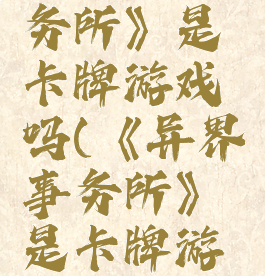 务所》是
卡牌游戏
吗(《异界
事务所》
是卡牌游